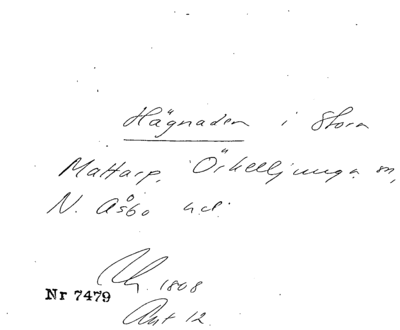 Hägnaden i Stora
Mattarp, Örkelljunga sn,
N. Åsbo hd.
1808
Nr 7479
Ant 12.